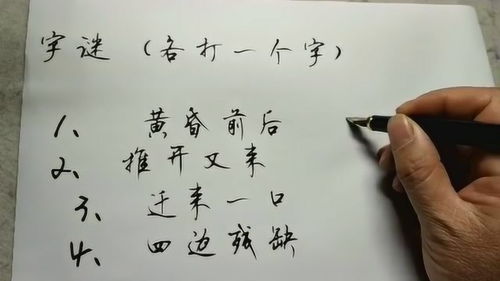 字谜（各打一个字）
1、黄昏前后
2、推开又来
3、迁来一口
4、四边残缺